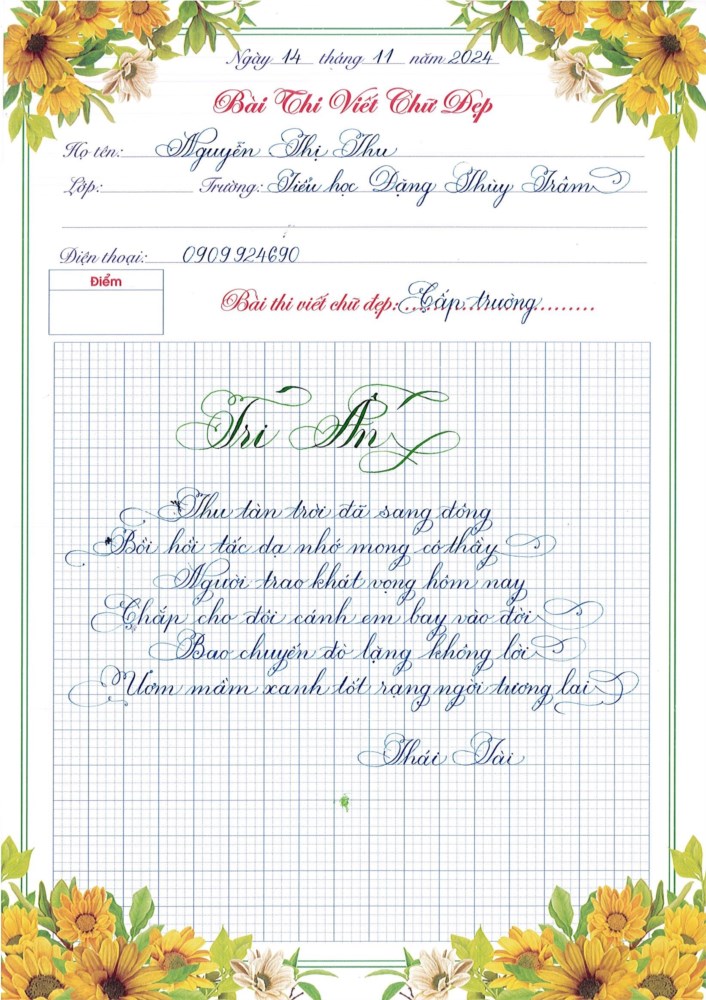 Ngày 14 tháng 11 năm 2024
Bài Thi Viết Chữ Đẹp
Họ tên: Nguyễn Thị Thu
Lớp: Trường: Tiểu học Đặng Thùy Trâm
Điện thoại: 0909924690
Điểm
Bài thi viết chữ đẹp: Cấp trường
Tri Ân
Thu tàn trời đã sang đông
Bồi hồi tấc dạ nhớ mong cô thầy
Người trao khát vọng hôm nay
Chắp cho đôi cánh em bay vào đời
Bao chuyến đò lặng không lời
Ươm mầm xanh tốt rạng ngời tương lai
Thái Tài